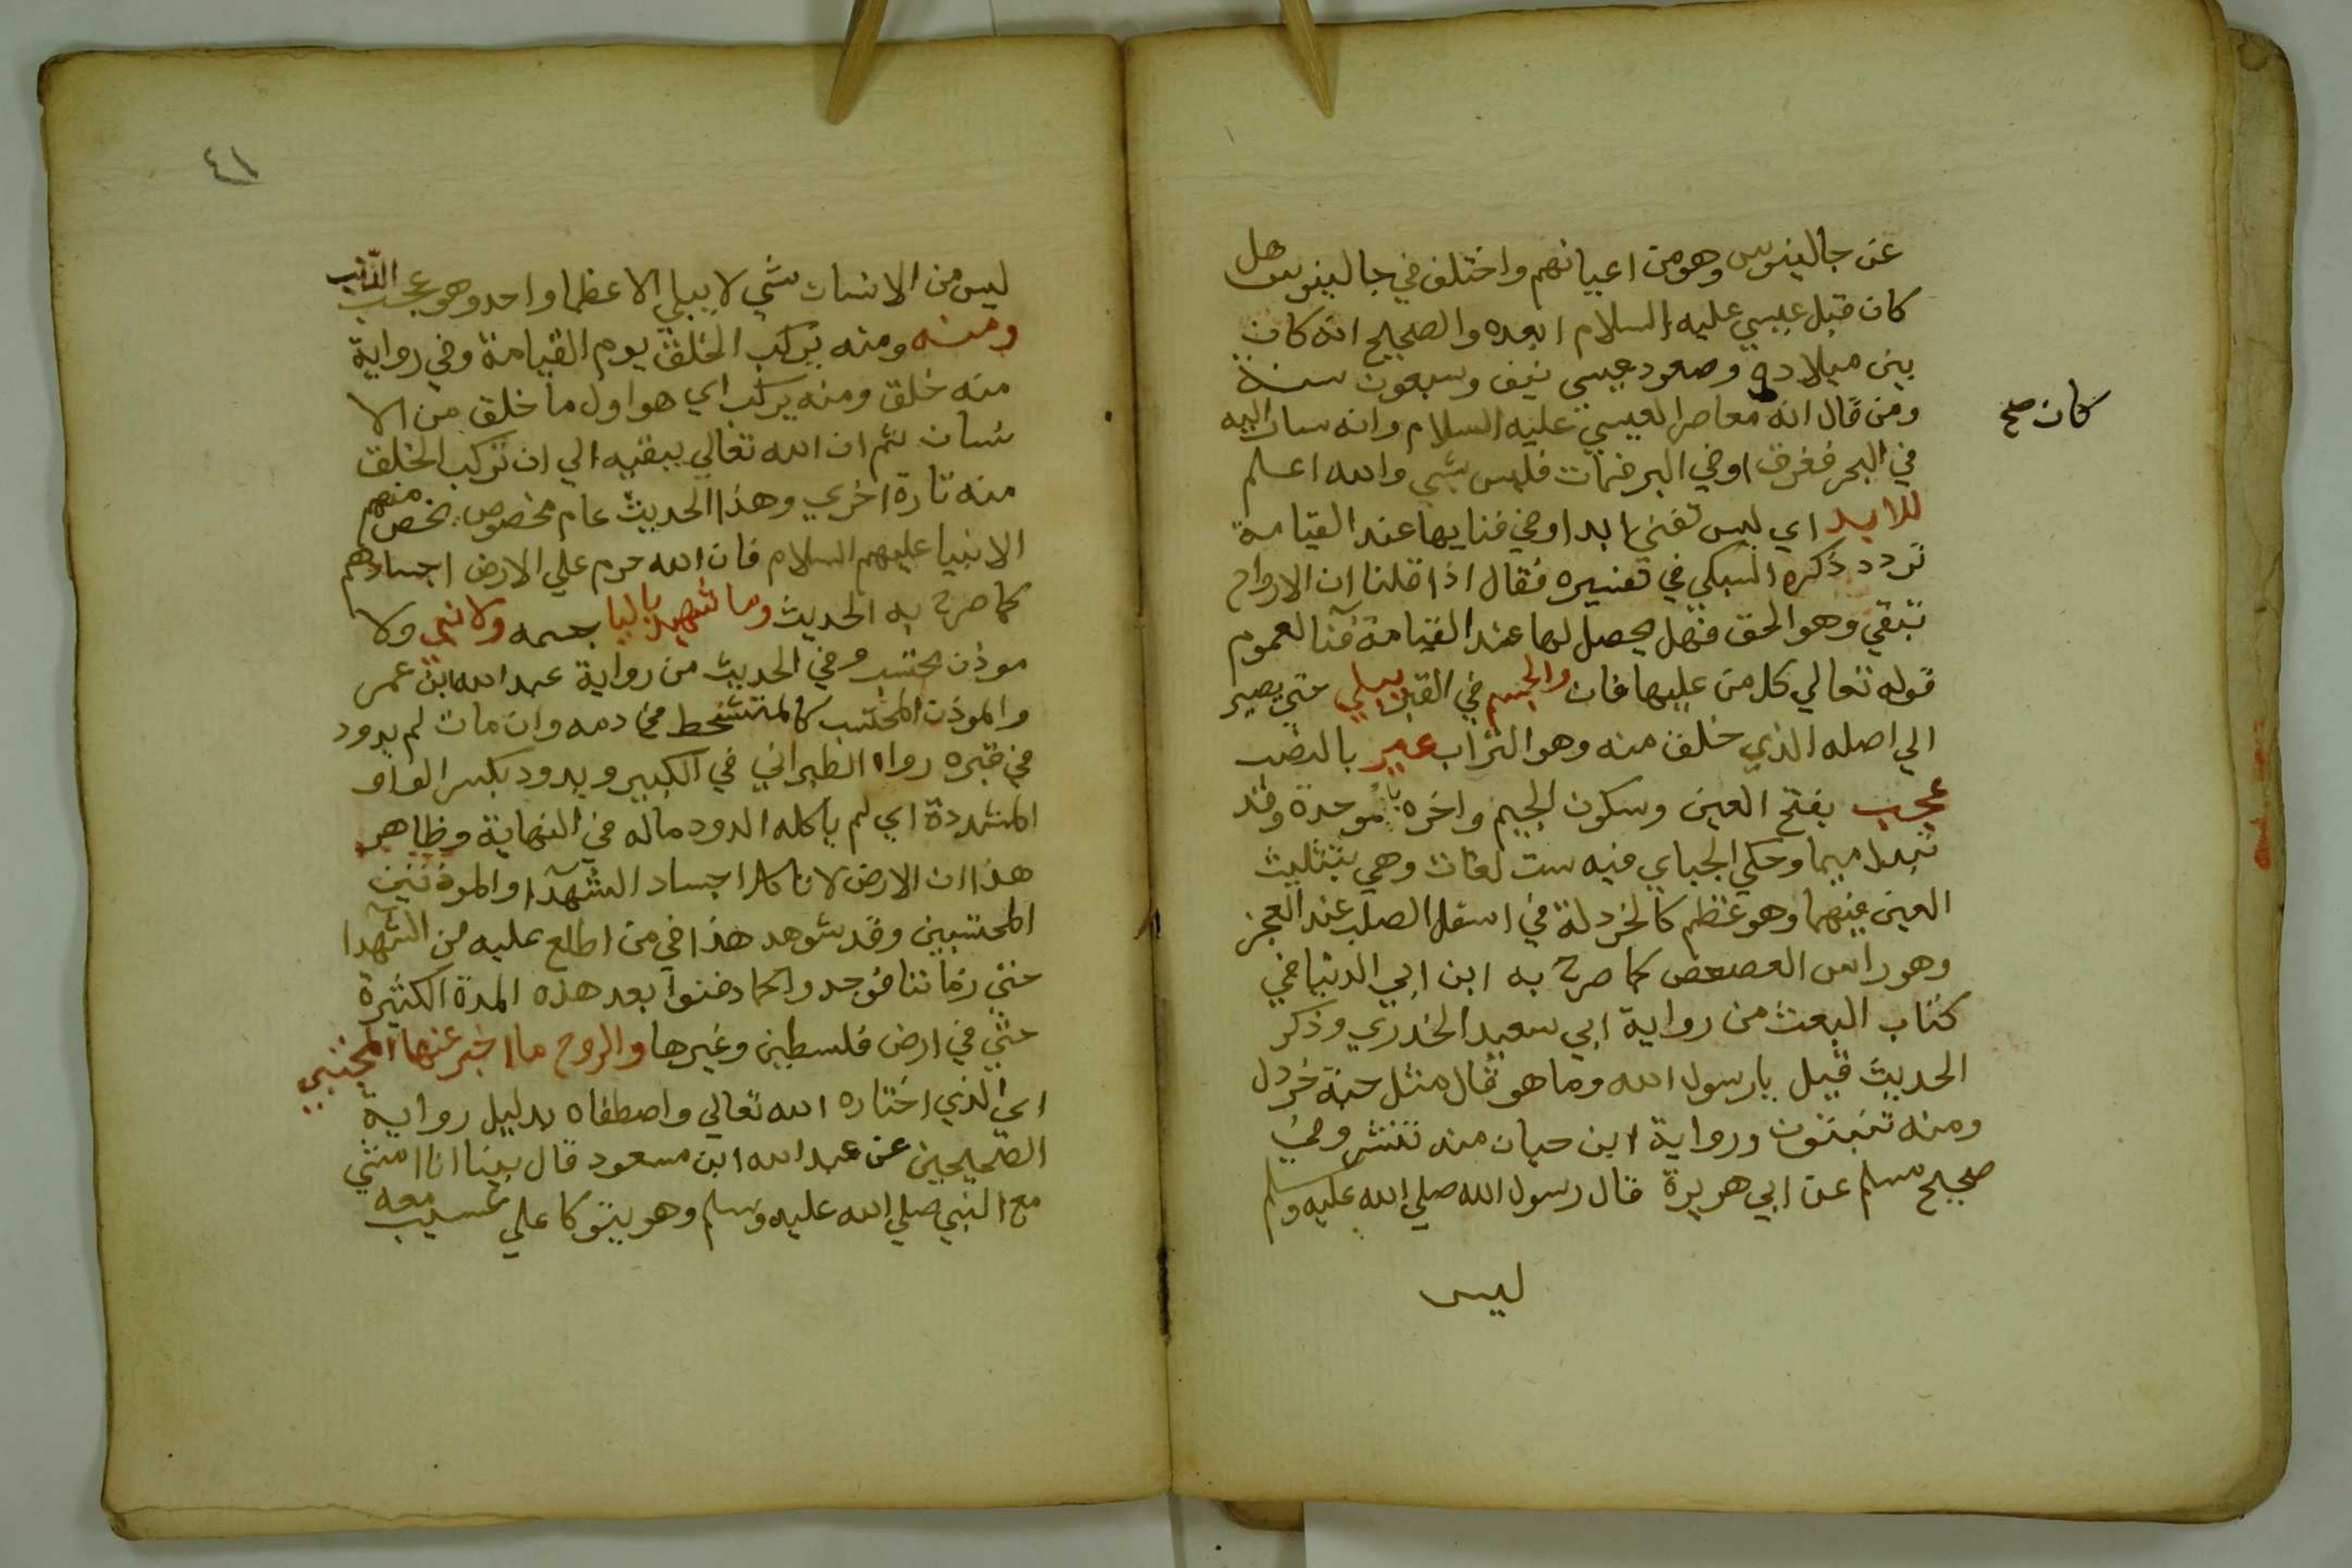 عن جالينوس وهو من اعيانهم واختلف في جالينوس هل
كان قبل عيسي عليه السلام ابعده والصحيح انه كان
بين ميلاده وصعود عيسي نيف وسبعون سنة
كان صح
ومن قال انه معاصر العيسي عليه السلام وانه سار اليه
في البحر فغرق اوفي البر فمات فليس بشي والله اعلم
للابد اي ليس تفني ابدا وفي فنايها عند القيامة
تردد ذكره السبكي في تفسيره فقال اذا قلنا ان الارواح
تبقي وهو الحق فهل يحصل لها عند القيامة فنا لعموم
قوله تعالي كل من عليها فان والجسم في القبر يبلي حتي يصير
الي اصله الذي خلق منه وهو التراب غير بالنصب
عجب بفتح العين وسكون الجيم واخره با موحدة وقد
تبدل ميما وحكي الجياي فيه ست لغات وهي بتثليث
العين فيهما وهو عظم كالخردلة في اسفل الصلب عند العجز
وهو راس العصعص كما صرح به ابن ابي الدنيا في
كتاب البعث من رواية ابي سعيد الخدري وذكر
الحديث قيل يارسول الله وما هو قال مثل حبة خردل
ومنه تنبتون ورواية ابن حبان منه تنشر وفي
صحيح مسلم عن ابي هريرة قال رسول الله صلي الله عليه وسلم
ليس
٤١
ليس من الانسان شي لا يبلي الا عظما واحد وهو عجب الذنب
ومنه ومنه يركب الخلق يوم القيامة وفي رواية
منه خلق ومنه يركب اي هو اول ما خلق من الا
نسان ثم ان الله تعالي يبقيه الي ان تركب الخلق
منه تارة اخري وهذا الحديث عام مخصوص يخص منهم
الانبيا عليهم السلام فان الله حرم علي الارض اجسادهم
كما صرح به الحديث وما شهيد باليا جسمه ولا نبي ولا
موذن محتسب وفي الحديث من رواية عبد الله ابن عمر
والموذن المحتسب كالمتشحط في دمه وان مات لم يدود
في قبره رواه الطبراني في الكبير ويدود بكسر الواو
المشددة اي لم ياكله الدود ماله في النهاية وظاهر
هذا ان الارض لا تاكل اجساد الشهدا والموذنين
المحتسبين وقد شوهد هذا في من اطلع عليه من الشهدا
حتي زماننا فوجدوا كما دفنوا بعد هذه المدة الكثيرة
حتي في ارض فلسطين وغيرها والروح ما اخبر عنها المجتبي
اي الذي اختاره الله تعالي واصطفاه بدليل رواية
الصحيحين عن عبد الله ابن مسعود قال بينا انا امشي
مع النبي صلي الله عليه وسلم وهو يتوكا علي عسيب معه